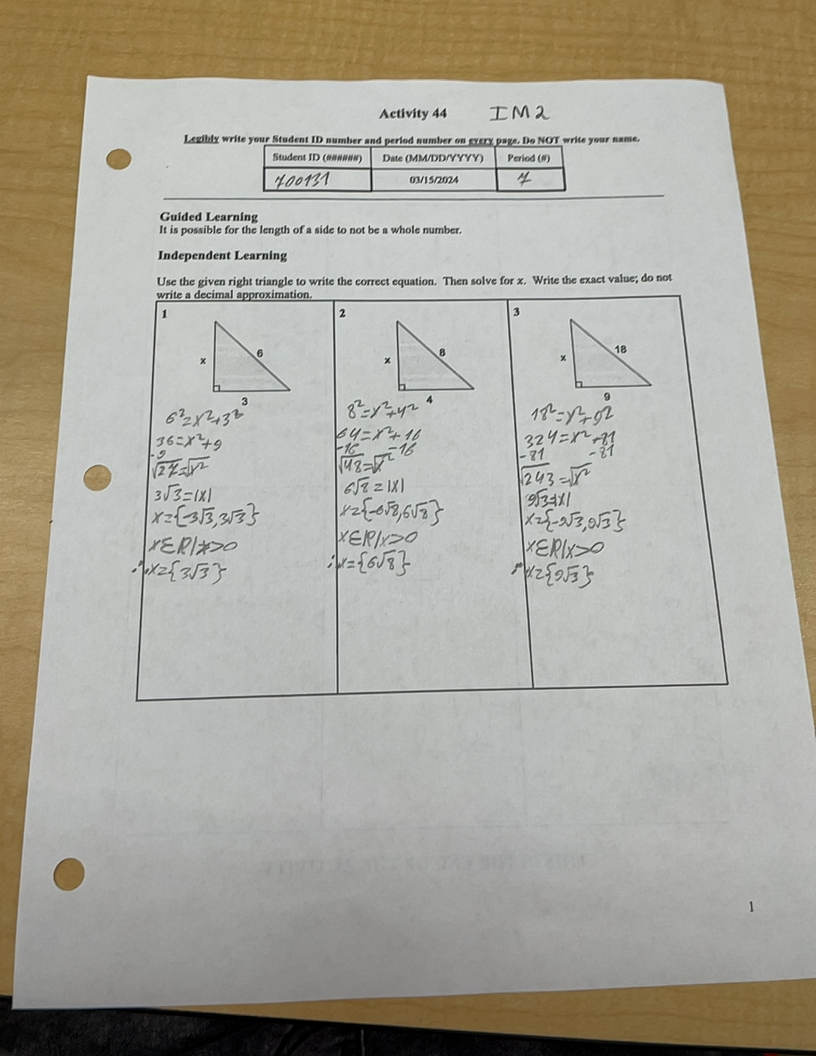 Activity 44 IM2
Legibly write your Student ID number and period number on every page. Do NOT write your name.
Student ID (######) Date (MM/DD/YYYY) Period (#)
700131 03/15/2024 7
Guided Learning
It is possible for the length of a side to not be a whole number.
Independent Learning
Use the given right triangle to write the correct equation. Then solve for x. Write the exact value; do not
write a decimal approximation.
1
x
6
3
6²=x²+3²
36=x²+9
-9
√27=√x²
3√3=|x|
x={-3√3,3√3}
x∈ℝ|x>0
∴x={3√3}
2
x
8
4
8²=x²+4²
64=x²+16
-16 -16
√48=√x²
6√8=|x|
x={-6√8,6√8}
x∈ℝ|x>0
∴x={6√8}
3
x
18
9
18²=x²+9²
324=x²+81
-81 -81
√243=√x²
9√3=|x|
x={-9√3,9√3}
x∈ℝ|x>0
∴x={9√3}
1